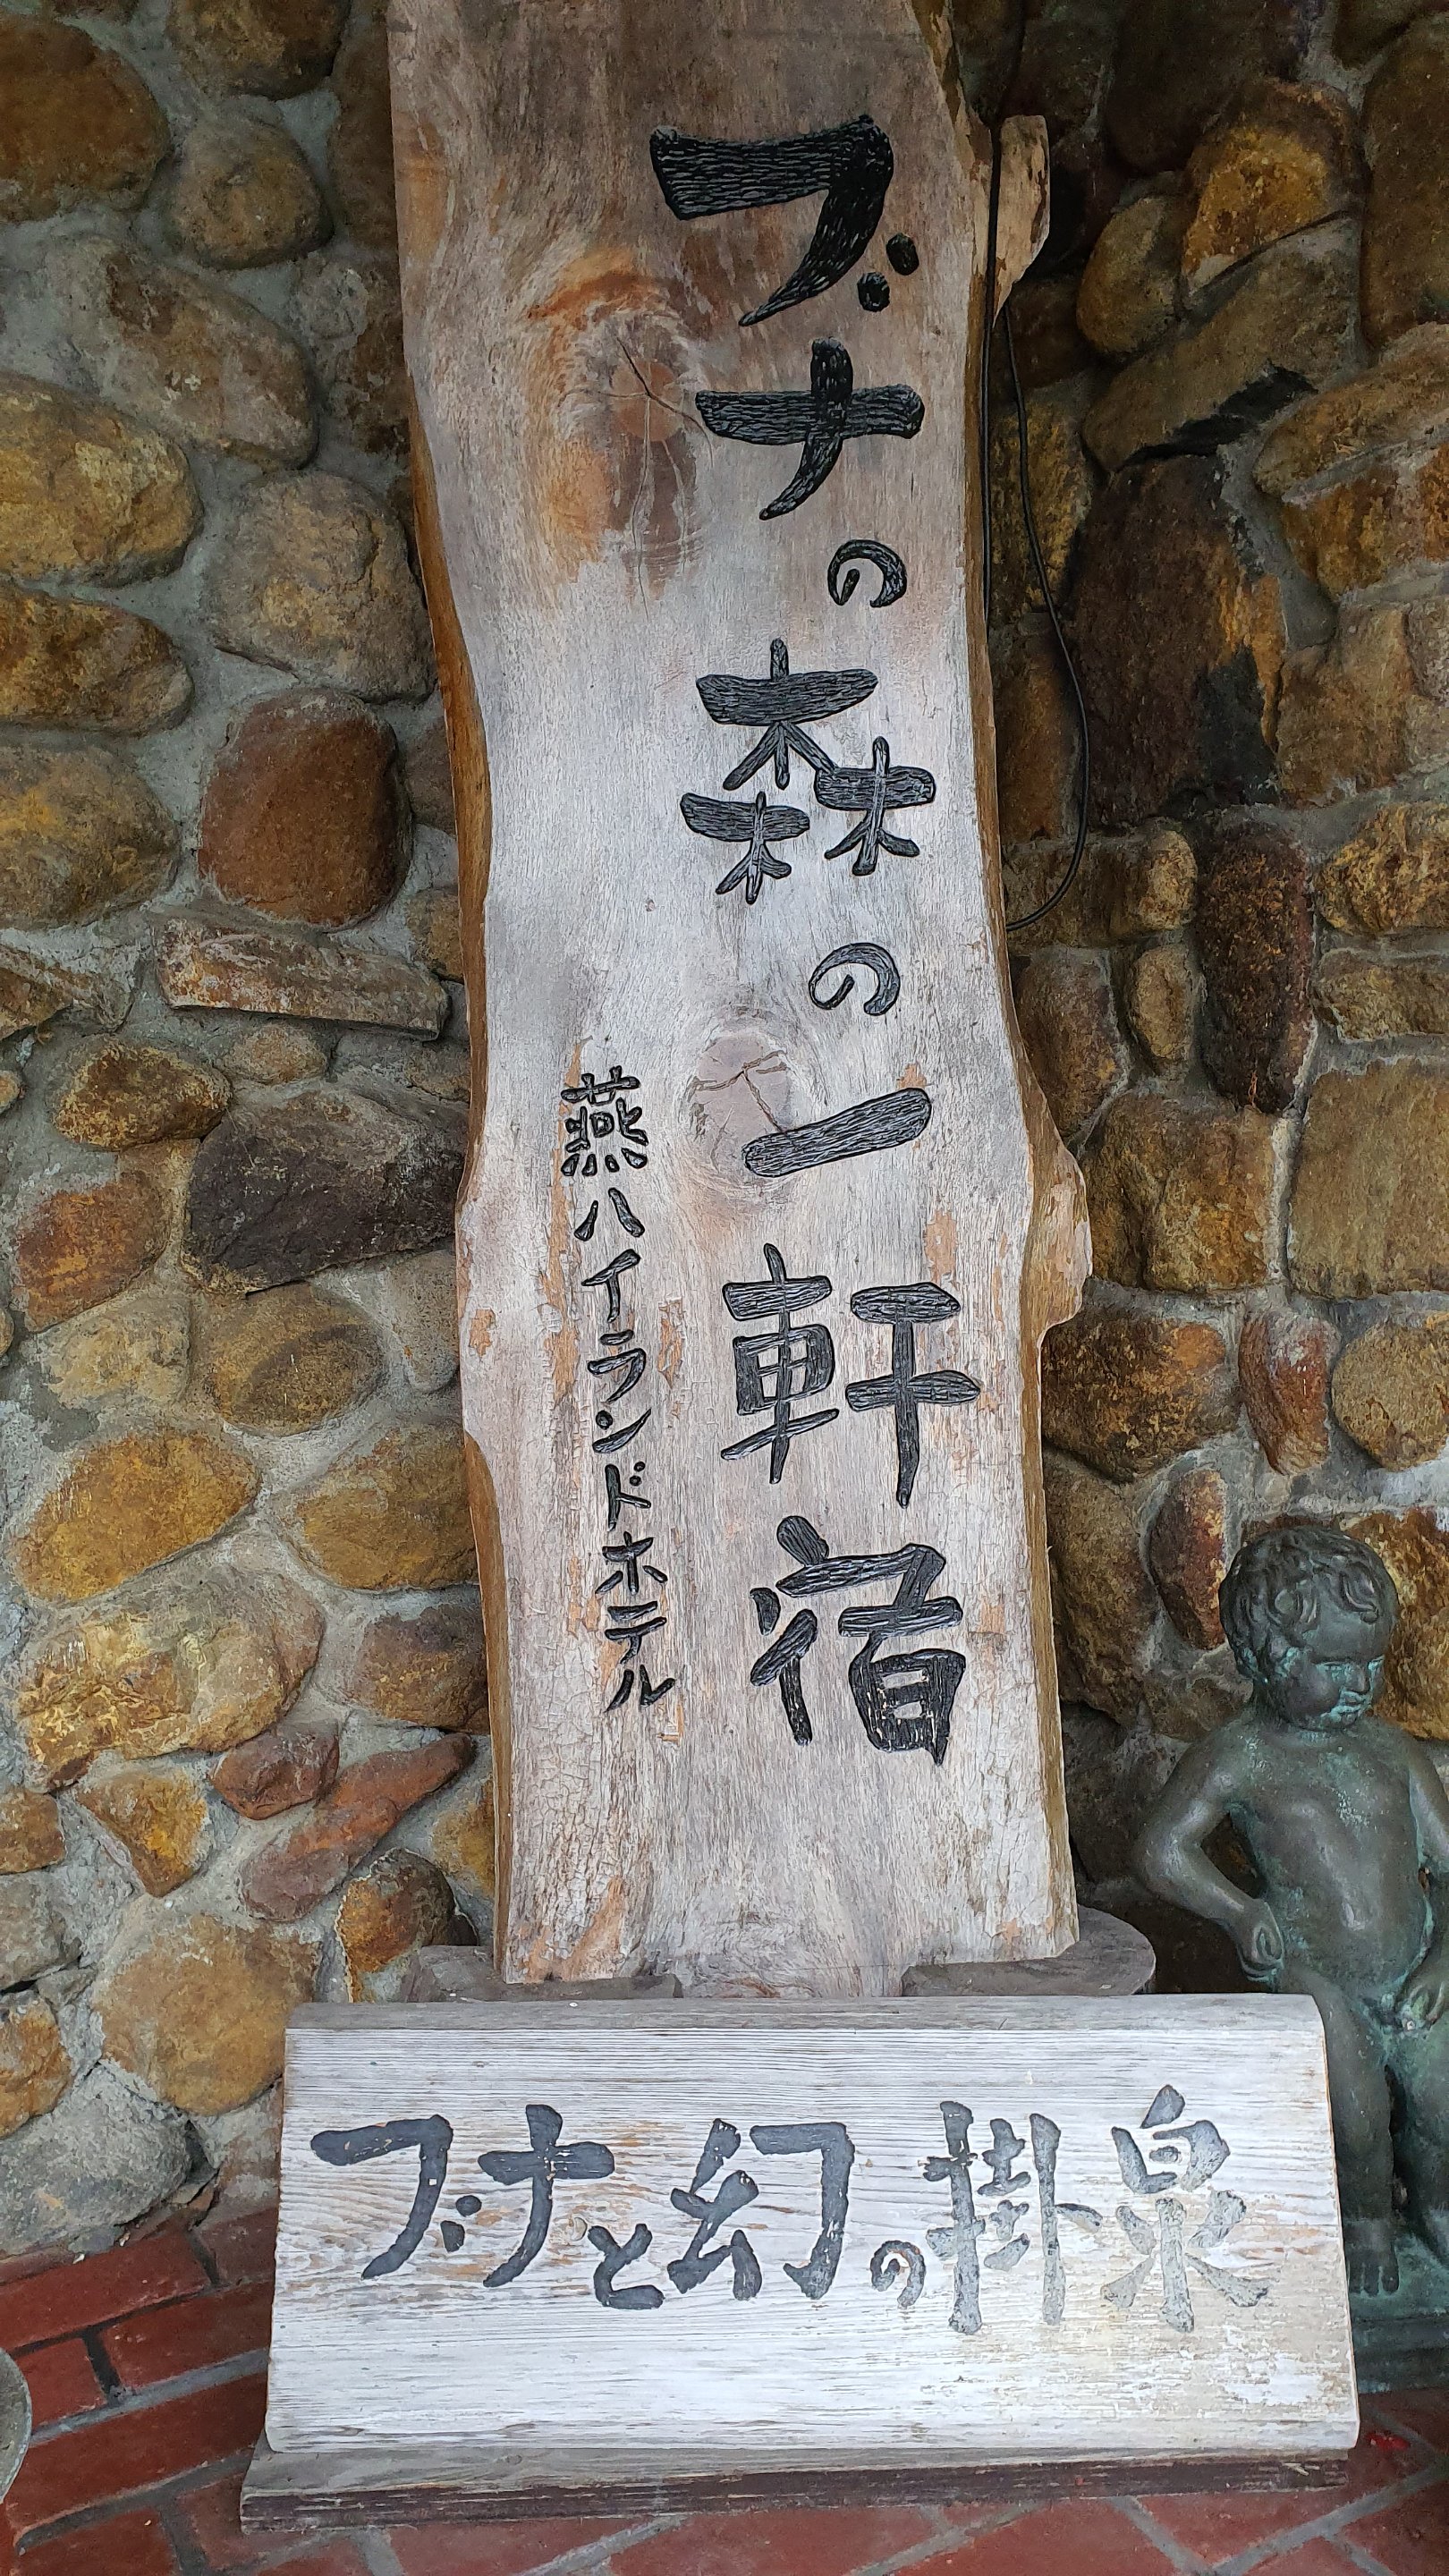 ブナの森の一軒宿
燕ハイランドホテル
ブナと幻の掛泉